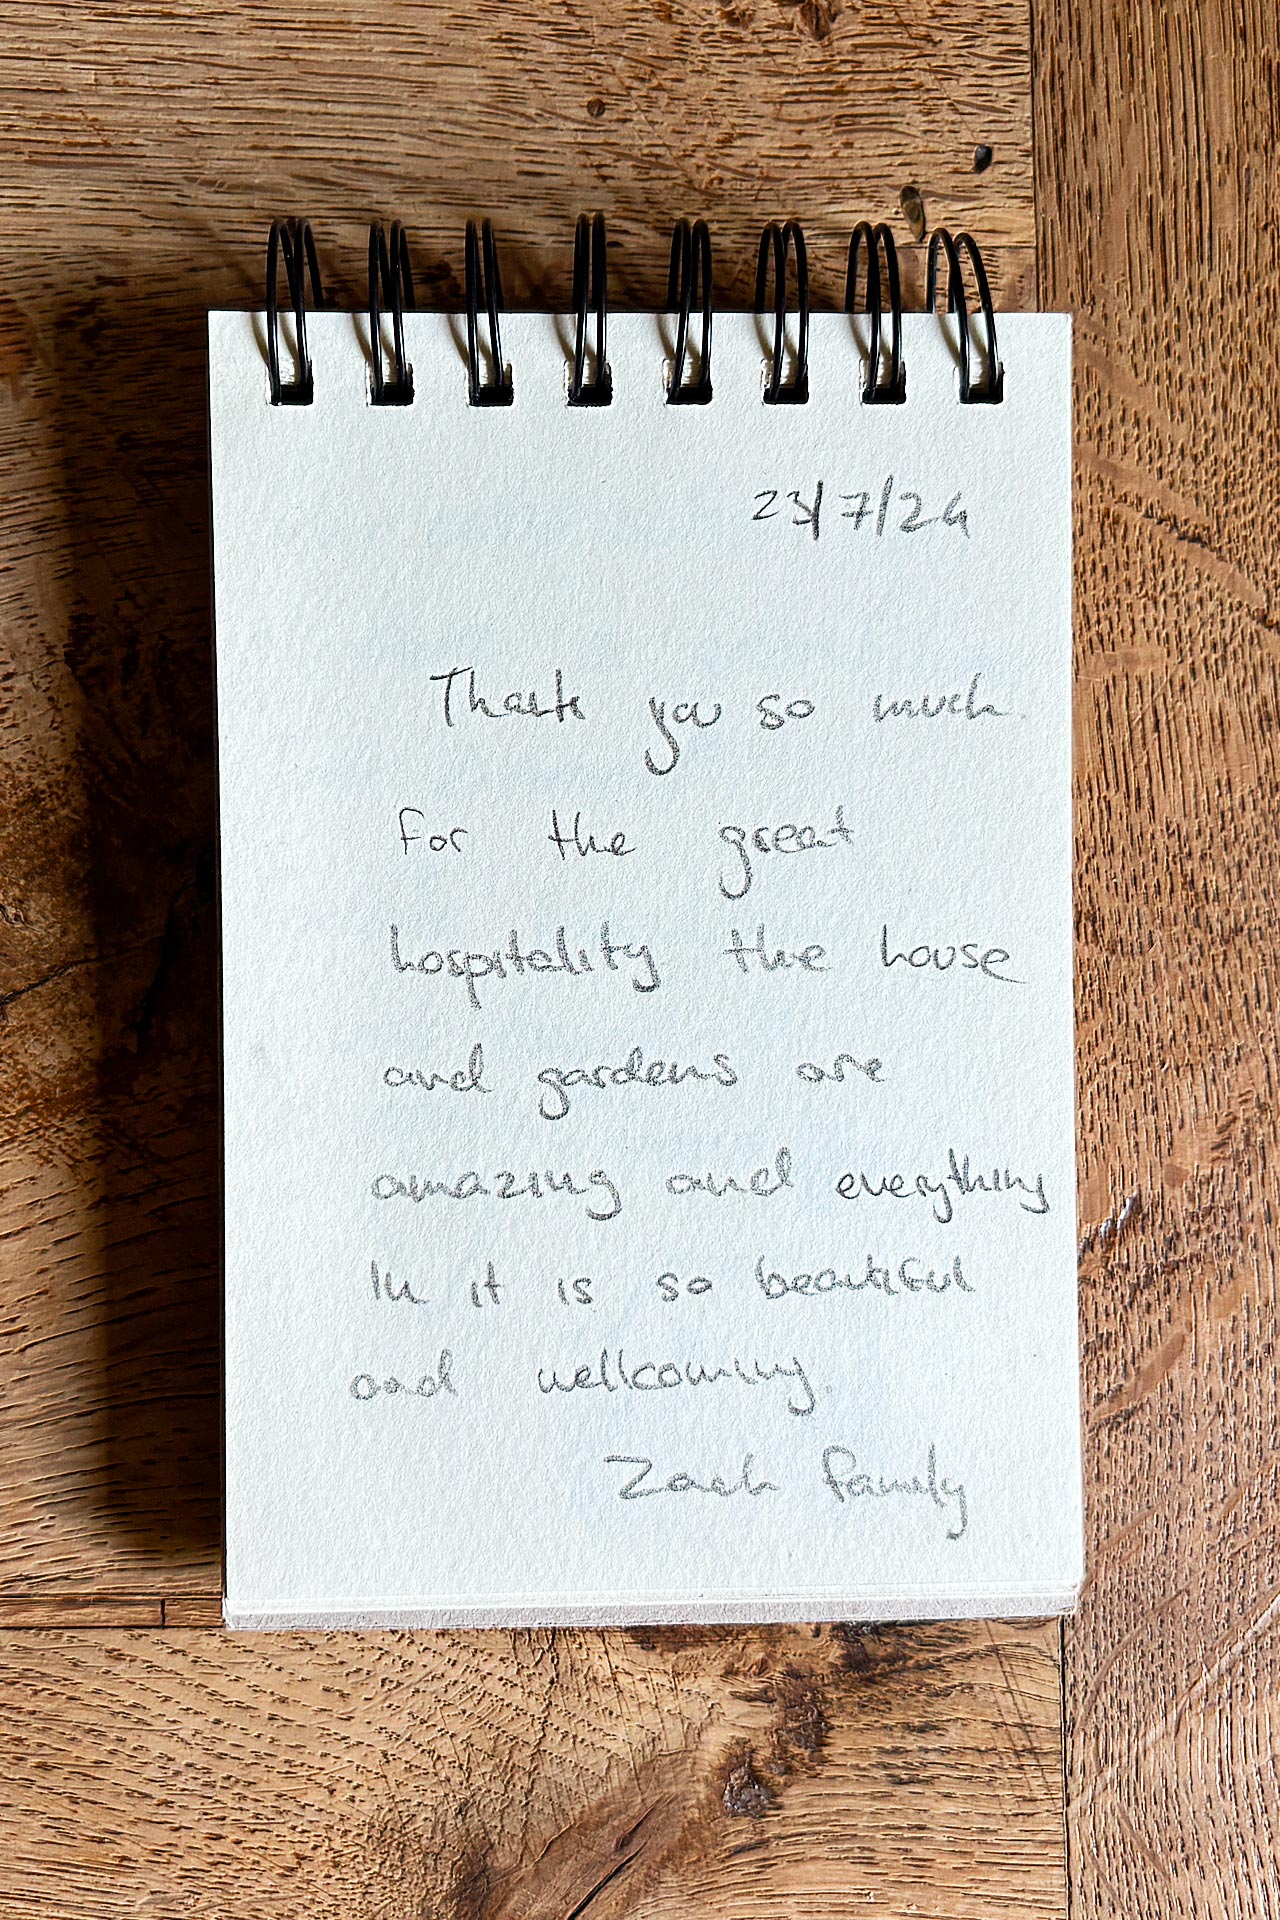 23/7/24
Thank you so much
for the great
hospitality the house
and gardens are
amazing and everything
In it is so beautiful
and wellcoming.
Zach family